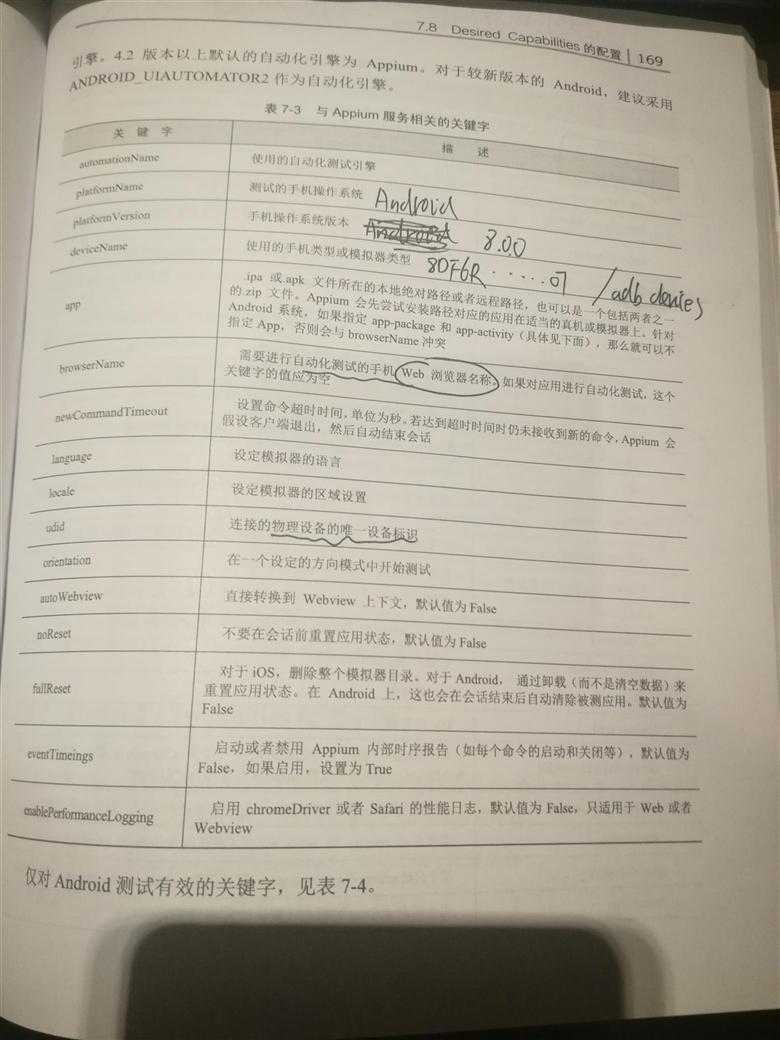 7.8 Desired Capabilities 的配置 | 169
引擎。4.2 版本以上默认的自动化引擎为 Appium。对于较新版本的 Android，建议采用
ANDROID_UIAUTOMATOR2 作为自动化引擎。
表 7-3 与 Appium 服务相关的关键字
关 键 字 描 述
automationName 使用的自动化测试引擎
platformName 测试的手机操作系统 Android
platformVersion 手机操作系统版本 8.0.0
deviceName 使用的手机类型或模拟器类型 8DF6R ······07 /adb devies
app .ipa 或.apk 文件所在的本地绝对路径或者远程路径，也可以是一个包括两者之一
的.zip 文件。Appium 会先尝试安装路径对应的应用在适当的真机或模拟器上。针对
Android 系统，如果指定 app-package 和 app-activity（具体见下面），那么就可以不
指定 App，否则会与 browserName 冲突
browserName 需要进行自动化测试的手机 Web 浏览器名称。如果对应用进行自动化测试，这个
关键字的值应为空
newCommandTimeout 设置命令超时时间，单位为秒。若达到超时时间时仍未接收到新的命令，Appium 会
假设客户端退出，然后自动结束会话
language 设定模拟器的语言
locale 设定模拟器的区域设置
udid 连接的物理设备的唯一设备标识
orientation 在一个设定的方向模式中开始测试
autoWebview 直接转换到 Webview 上下文，默认值为 False
noReset 不要在会话前重置应用状态，默认值为 False
fullReset 对于 iOS，删除整个模拟器目录。对于 Android， 通过卸载（而不是清空数据）来
重置应用状态。在 Android 上，这也会在会话结束后自动清除被测应用。默认值为
False
eventTimeings 启动或者禁用 Appium 内部时序报告（如每个命令的启动和关闭等），默认值为
False，如果启用，设置为 True
enablePerformanceLogging 启用 chromeDriver 或者 Safari 的性能日志，默认值为 False，只适用于 Web 或者
Webview
仅对 Android 测试有效的关键字，见表 7-4。